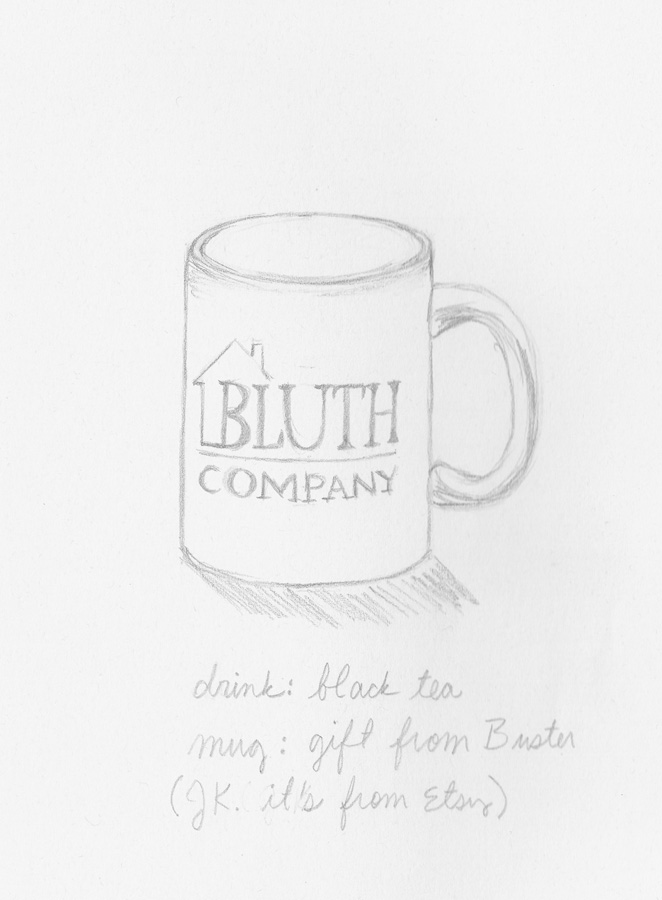 BLUTH
COMPANY
drink: black tea
mug: gift from Buster
(JK. it's from Etsy)